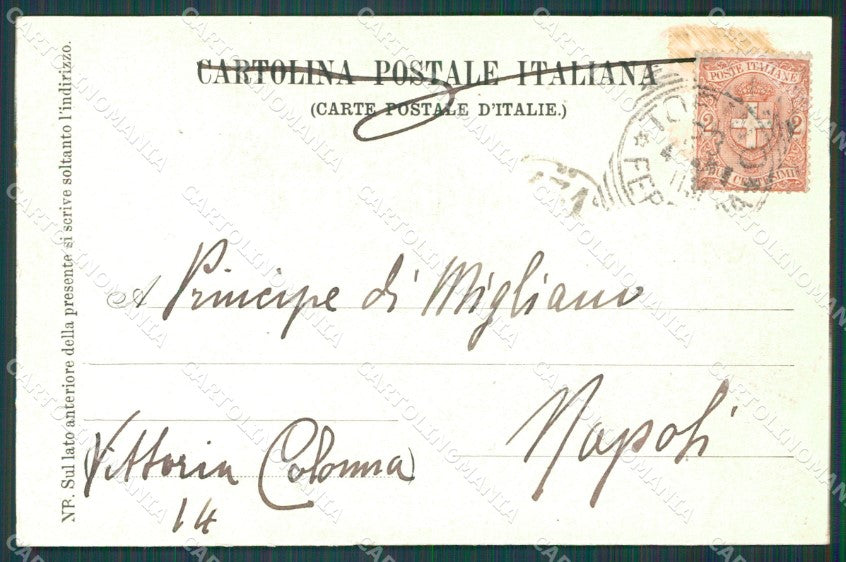 CARTOLINA POSTALE ITALIANA
(CARTE POSTALE D'ITALIE.)
POSTE ITALIANE
2 2
NB. Sul lato anteriore della presente si scrive soltanto l'indirizzo.
A Principe di Migliano
Napoli
Vittoria Colonna
14
CARTOLINOMANIA